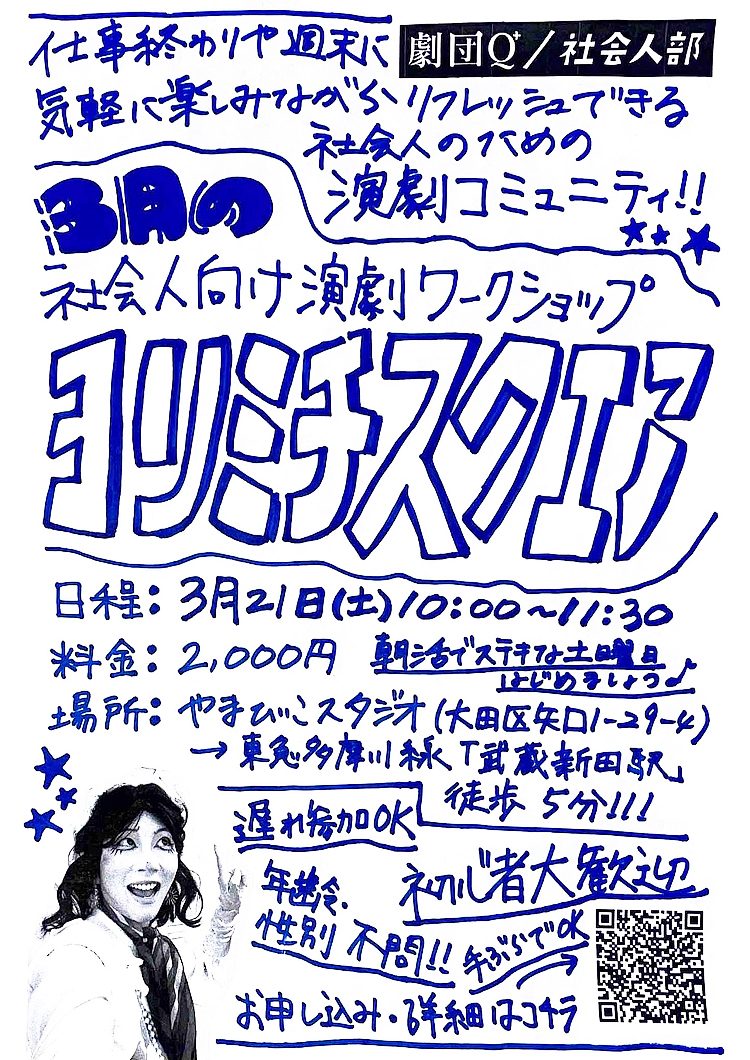 仕事終わりや週末に
劇団Q⁺/社会人部
気軽に楽しみながらリフレッシュできる
社会人のための
演劇コミュニティ!!
3月の
社会人向け演劇ワークショップ
ヨリミチスクエア
日程：3月21日(土)10:00～11:30
料金：2,000円
朝活でステキな土曜日
はじめましょう♪
場所：やまびこスタジオ(大田区矢口1-29-4)
→東急多摩川線「武蔵新田駅」
徒歩5分!!!
遅れ参加OK
初心者大歓迎
年齢、
性別不問!!
手ぶらでOK
お申し込み・詳細はコチラ